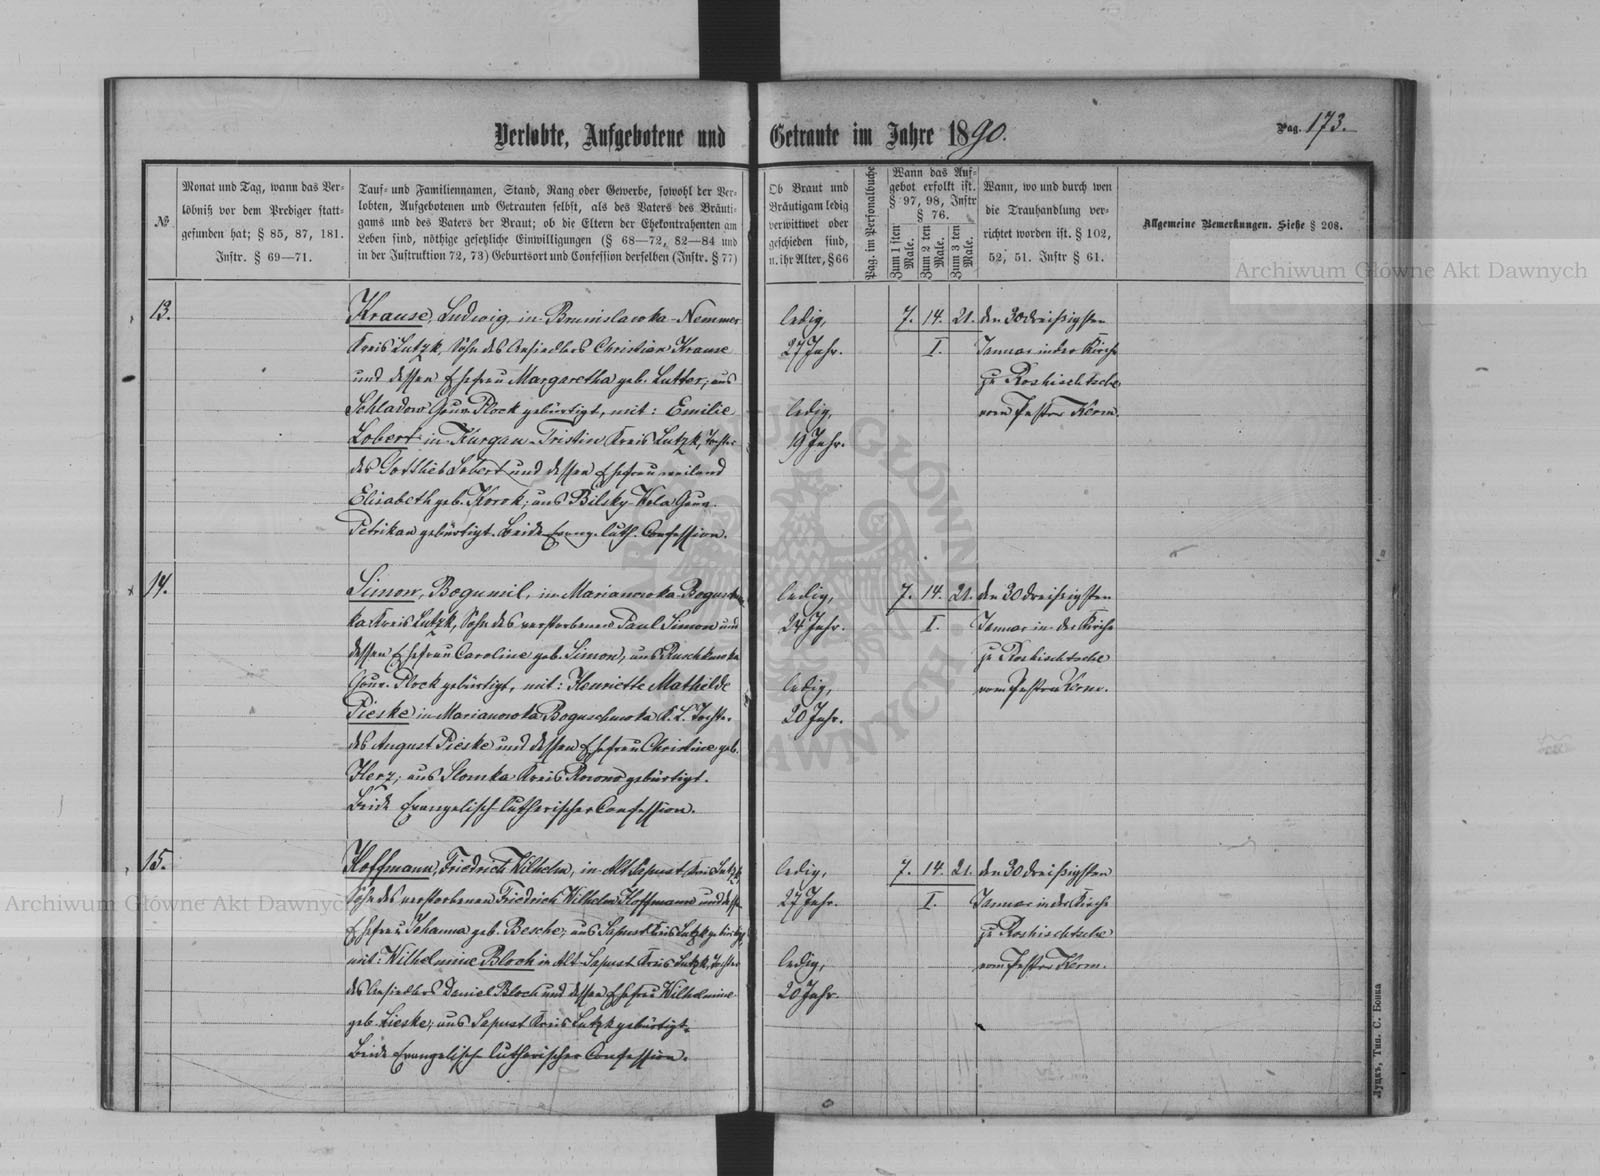 Verlobte, Aufgebotene und Getraute im Jahre 1890.
Pag. 173.
№
Monat und Tag, wann das Ver-
löbniß vor dem Prediger statt-
gefunden hat; § 85, 87, 181.
Instr. § 69—71.
Tauf- und Familiennamen, Stand, Rang oder Gewerbe, sowohl der Ver-
lobten, Aufgebotenen und Getrauten selbst, als des Vaters des Bräuti-
gams und des Vaters der Braut; ob die Eltern der Ehekontrahenten am
Leben sind, nöthige gesetzliche Einwilligungen (§ 68—72, 82—84 und
in der Instruktion 72, 73) Geburtsort und Confession derselben (Instr. § 77)
Ob Braut und
Bräutigam ledig
verwittwet oder
geschieden sind,
u. ihr Alter, §66
Pag. im Personalbuche
Wann das Auf-
gebot erfolgt ist.
§ 97, 98, Instr
§ 76.
Zum 1 sten Male.
Zum 2 ten Male.
Zum 3 ten Male.
Wann, wo und durch wen
die Trauhandlung ver-
richtet worden ist. § 102,
52, 51. Instr § 61.
Allgemeine Bemerkungen. Siehe § 208.
13.
Krause, Ludwig, in Brunislawka-Nemmer
Kreis Lutzk, Sohn des Ansiedlers Christian Krause
und dessen Ehefrau Margaretha geb. Lutter, aus
Schladow Gouv. Plock gebürtigt, mit: Emilie
Lobert in Kurgan-Tristin Kreis Lutzk, Tochter
des Gottlieb Lobert und dessen Ehefrau weiland
Elisabeth geb. Korok; aus Bilsky-Wola Gouv.
Petrikau gebürtigt. Beide Evang. luth. Confession.
ledig,
27 Jahr.
ledig,
19 Jahr.
7. 14. 21.
I.
den 30 dreißigsten
Januar in der Kirche
zu Roshischtsche
vom Pastor Kerm.
14.
Simon, Bogumil, in Marianowka-Boguschow-
ka Kreis Lutzk, Sohn des verstorbenen Paul Simon und
dessen Ehefrau Caroline geb. Simon, aus Ruschkowka
Gouv. Plock gebürtigt, mit: Henriette Mathilde
Pieske in Marianowka Boguschowka K. L. Tochter
des August Pieske und dessen Ehefrau Christine geb.
Herz; aus Slomka Kreis Rowno gebürtigt.
Beide Evangelisch-lutherischer Confession.
ledig,
24 Jahr.
ledig,
20 Jahr.
7. 14. 21.
I.
den 30 dreißigsten
Januar in der Kirche
zu Roshischtsche
vom Pastor Kerm.
15.
Hoffmann, Friedrich Wilhelm, in Alt Sapust, Kreis Lutzk
Sohn des verstorbenen Friedrich Wilhelm Hoffmann und dess.
Ehefrau Johanna geb. Besche; aus Sapust Kreis Lutzk gebürtig,
mit: Wilhelmine Bloch in Alt-Sapust Kreis Lutzk, Tochter
des Ansiedlers Daniel Bloch und dessen Ehefrau Wilhelmine
geb. Lieske; aus Sapust Kreis Lutzk gebürtigt.
Beide Evangelisch lutherischer Confession.
ledig,
27 Jahr.
ledig,
20 Jahr.
7. 14. 21.
I.
den 30 dreißigsten
Januar in der Kirche
zu Roshischtsche
vom Pastor Kerm.
Луцкъ, Тип. С. Бонка
Archiwum Główne Akt Dawnych
Archiwum Główne Akt Dawnych